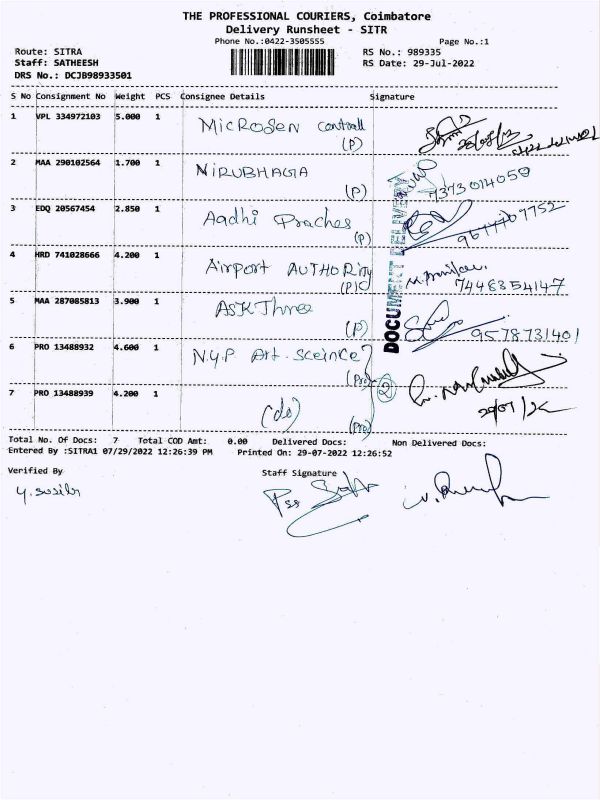 THE PROFESSIONAL COURIERS, Coimbatore
Delivery Runsheet - SITR
Phone No.:0422-3505555 Page No.:1
Route: SITRA RS No.: 989335
Staff: SATHEESH RS Date: 29-Jul-2022
DRS No.: DCJB98933501
S No Consignment No Weight PCS Consignee Details Signature
1 VPL 334972103 5.000 1 Microsen
(P)
2 MAA 290102564 1.700 1 NIRUBHAGIA
(P) 7373014059
3 EDQ 20567454 2.850 1 Aadhi Praches
(P) 9677707752
4 HRD 741028666 4.200 1 Airport AUTHORity
(P) 7448354147
5 MAA 287085813 3.900 1 ASK Three
(P) 9578731401
DOCUMENT DELIVERY
6 PRO 13488932 4.600 1 N.G.P Art. Sceince
(Pro) 2
7 PRO 13488939 4.200 1 (do)
(Pro)
Total No. Of Docs: 7 Total COD Amt: 0.00 Delivered Docs: Non Delivered Docs:
Entered By :SITRA1 07/29/2022 12:26:39 PM Printed On: 29-07-2022 12:26:52
Verified By Staff Signature